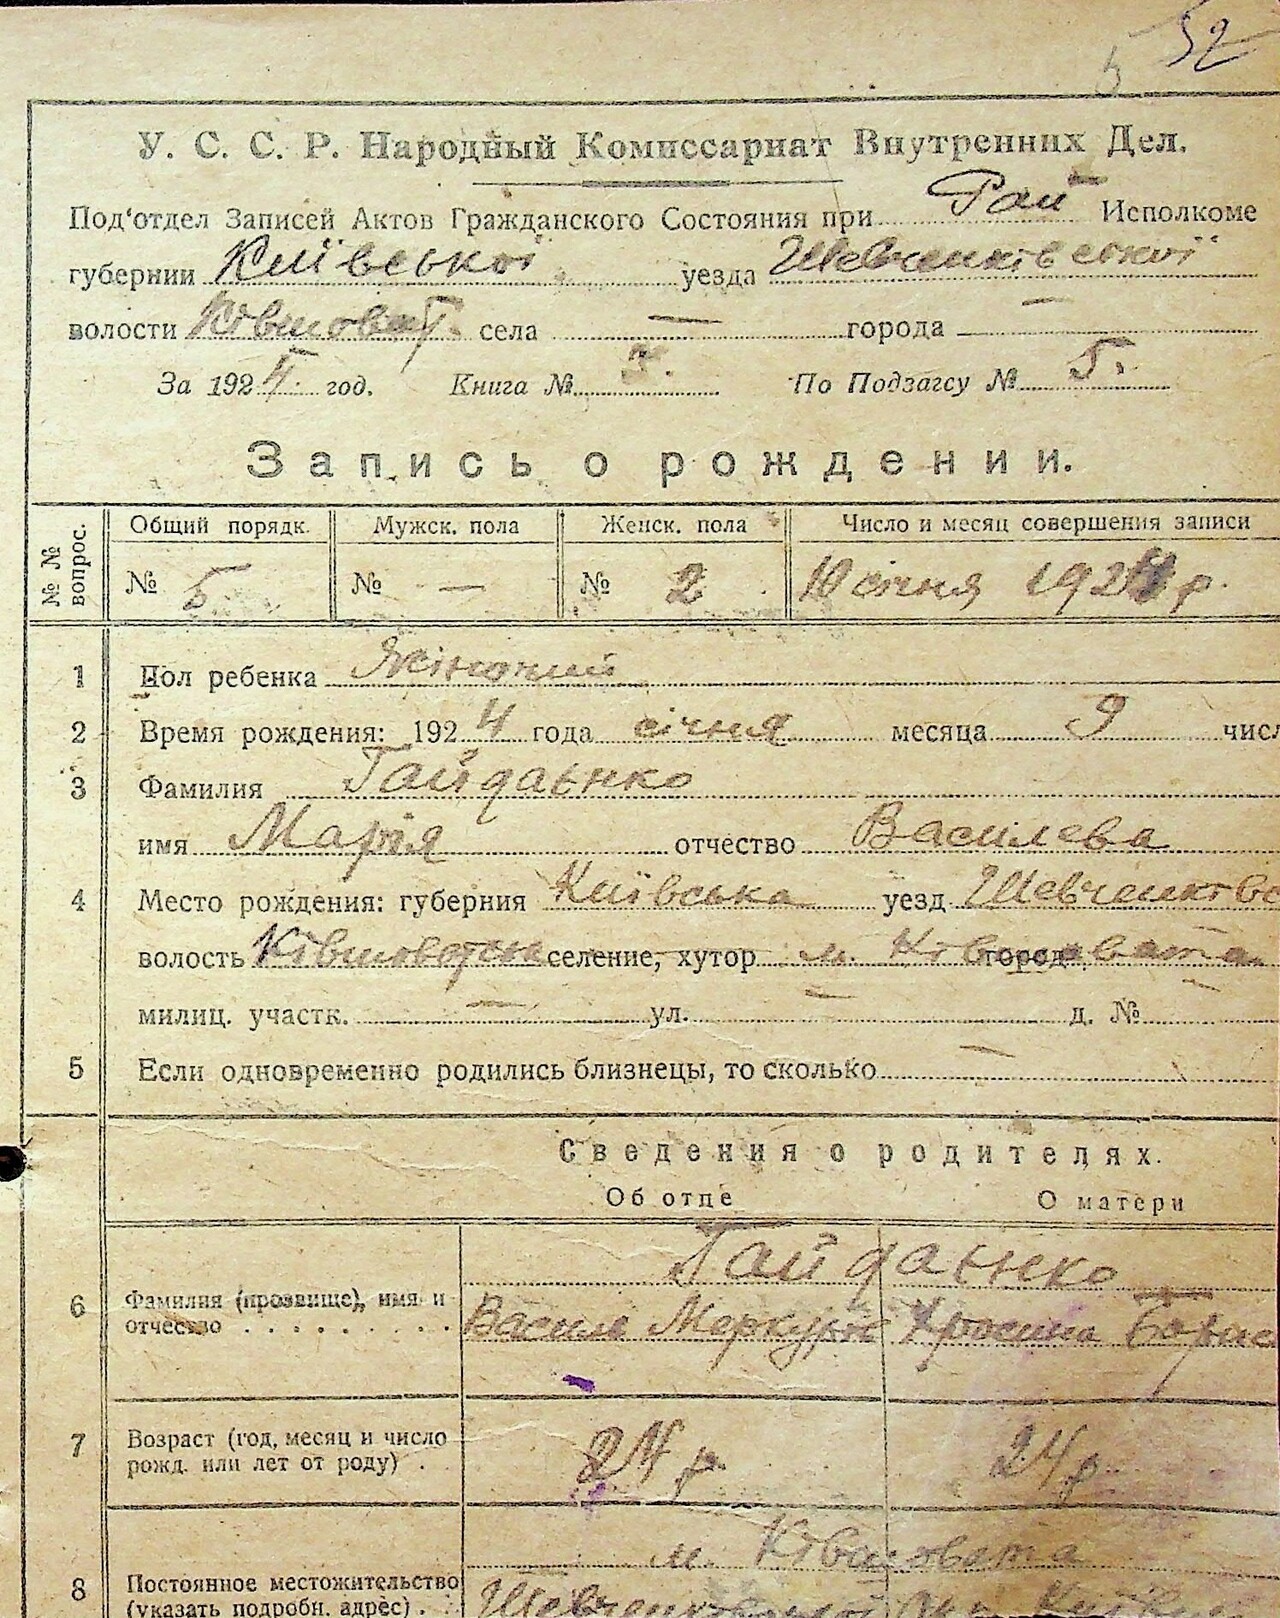 5 52
У. С. С. Р. Народный Комиссариат Внутренних Дел.
Под‘отдел Записей Актов Гражданского Состояния при Рай Исполкоме
губернии Київської уезда Шевченківської
волости Ківшоват. села — города —
За 1924 год. Книга № По Подзагсу № 5.
Запись о рождении.
№ № вопрос. Общий порядк. Мужск. пола Женск. пола Число и месяц совершения записи
№ 5 № — № 2 10 січня 1924 р.
1 Пол ребенка Жіночий
2 Время рождения: 1924 года січня месяца 9 числ
3 Фамилия Гайдаенко
имя Марія отчество Василева
4 Место рождения: губерния Київська уезд Шевченківс
волость Ківшоватська селение, хутор м. Ківшовата город
милиц. участк. — ул. — д. № —
5 Если одновременно родились близнецы, то сколько —
Сведения о родителях.
Об отце О матери
Гайдаенко
6 Фамилия (прозвище), имя и
отчество . . . . . . . . . Василь Меркурів Фросина Борис
7 Возраст (год, месяц и число
рожд. или лет от роду) . 24 р. 24 р.
м. Ківшовата
8 Постоянное местожительство
(указать подробн. адрес) . Шевченківської Окр. Київ